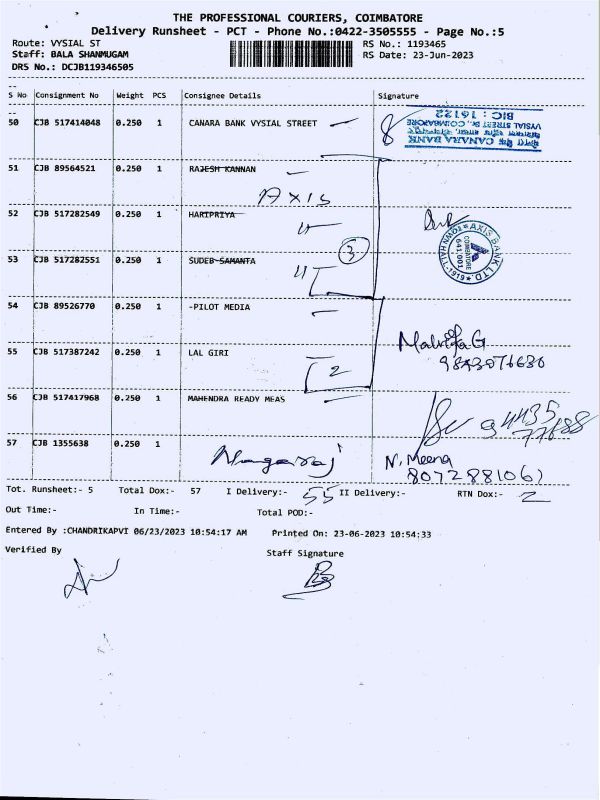 THE PROFESSIONAL COURIERS, COIMBATORE
Delivery Runsheet - PCT - Phone No.:0422-3505555 - Page No.:5
Route: VYSIAL ST
RS No.: 1193465
Staff: BALA SHANMUGAM
RS Date: 23-Jun-2023
DRS No.: DCJB119346505
S No Consignment No Weight PCS Consignee Details Signature
50 CJB 517414048 0.250 1 CANARA BANK VYSIAL STREET
CANARA BANK
VYSIAL STREET Br., COIMBATORE
BIC : 16122
51 CJB 89564521 0.250 1 RAJESH KANNAN
Axis
52 CJB 517282549 0.250 1 HARIPRIYA
3
AXIS BANK LTD.
TOWN HALL-1919
COIMBATORE
641 001
53 CJB 517282551 0.250 1 SUDEB SAMANTA
54 CJB 89526770 0.250 1 -PILOT MEDIA
55 CJB 517387242 0.250 1 LAL GIRI
2
56 CJB 517417968 0.250 1 MAHENDRA READY MEAS
57 CJB 1355638 0.250 1
Nagaraj
N. Meena
Tot. Runsheet:- 5 Total Dox:- 57 I Delivery:- 55 II Delivery:- RTN Dox:- 2
Out Time:- In Time:- Total POD:-
Entered By :CHANDRIKAPVI 06/23/2023 10:54:17 AM Printed On: 23-06-2023 10:54:33
Verified By Staff Signature